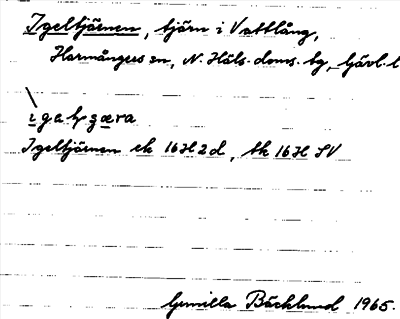 Igeltjärnen, tjärn i Vattlång,
Harmångers sn, N. Häls. doms. tg, Gävl. l
Igeltjärnen ek 16H2d, tk 16H SV
Gunilla Bäcklund 1965.